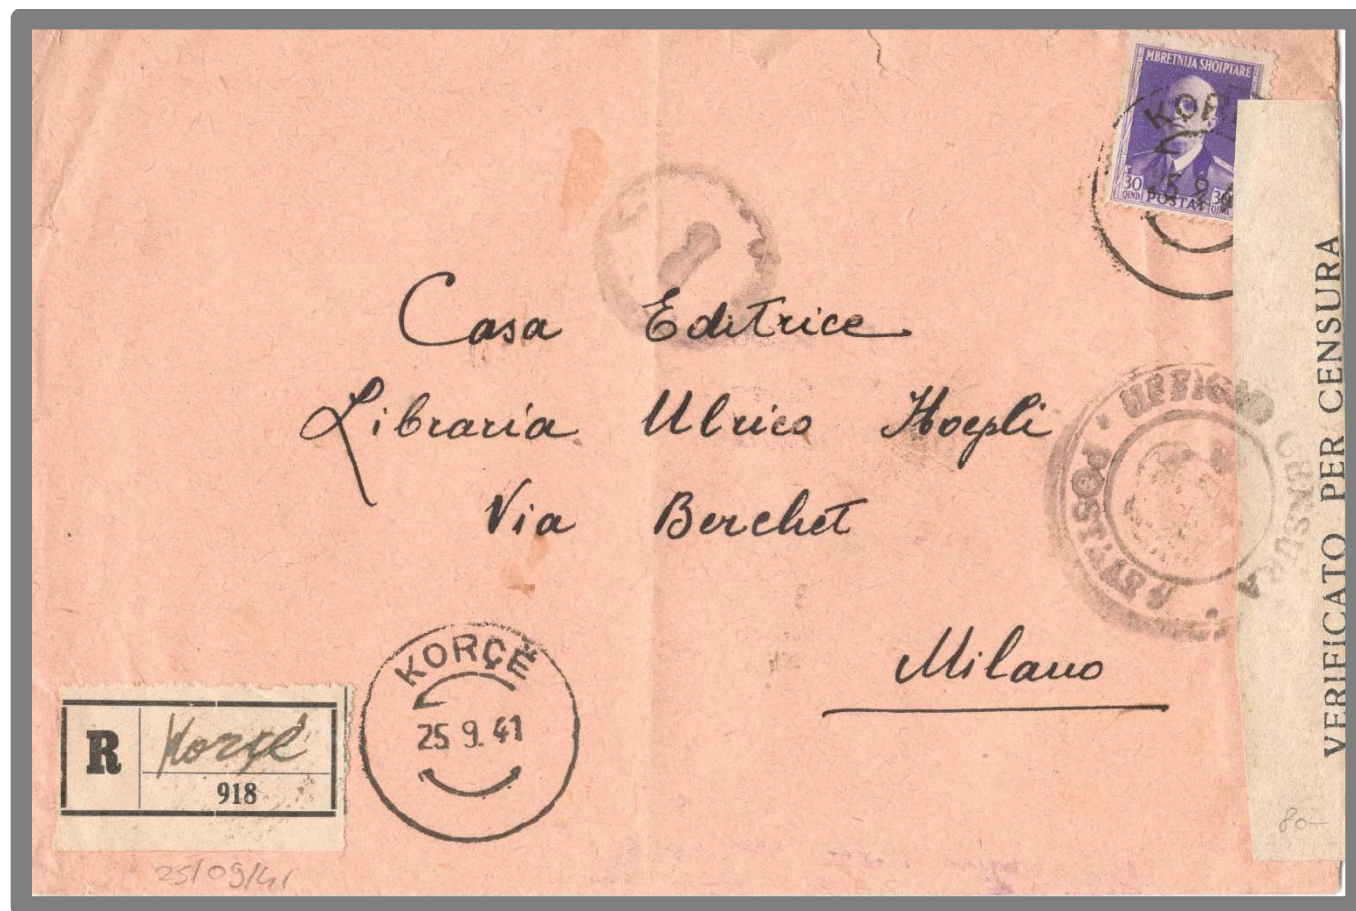 MBRETNIJA SHQIPTARE
KORÇ
30
QIND
POSTAT
30
QIND
Casa Editrice
Libraria Ulrico Hoepli
Via Berchet
Milano
UFFICIO CENSURA POSTALE
VERIFICATO PER CENSURA
R
Korçë
918
KORÇË
25 9. 41
25/09/41
80-